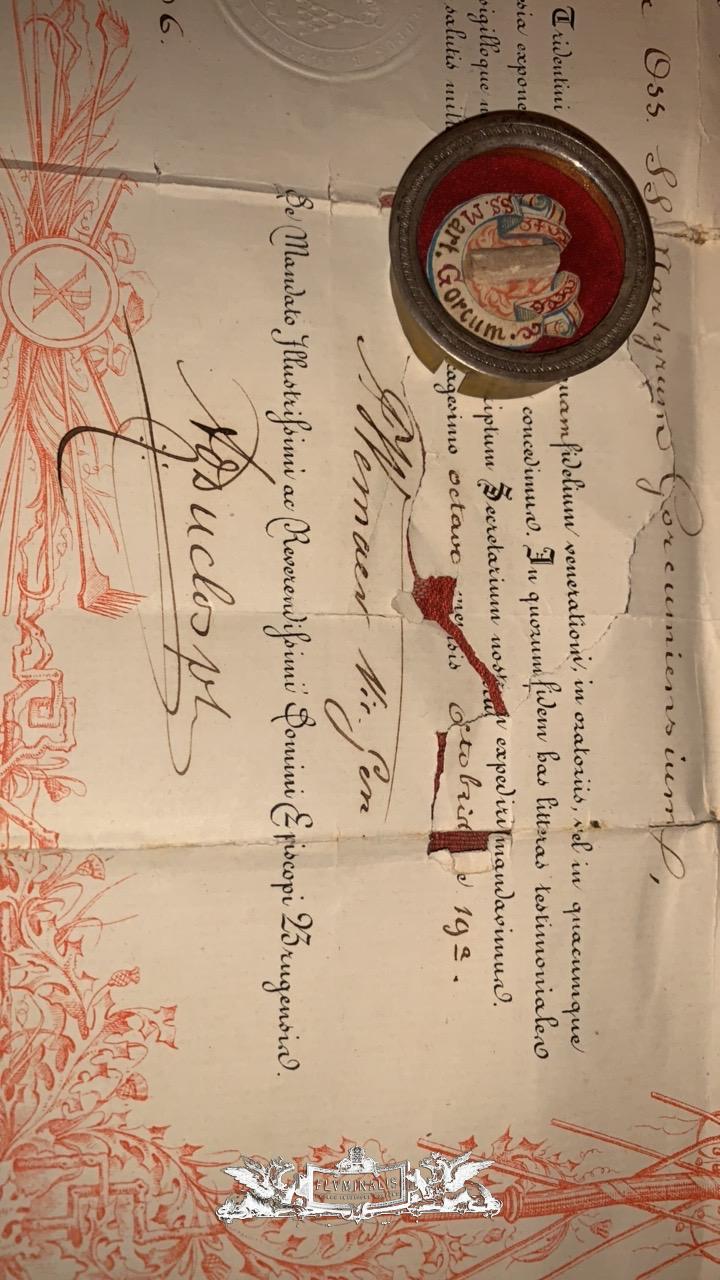 Oss. SS. Martyrum Gorcumiensium,
Tridentini
uam fidelium venerationi, in oratoriis, vel in quacumque
expone
concedimus. In quorum fidem has litteras testimoniales
sigilloque
iptum Secretarium nostrum expediri mandavimus.
salutis mill
octavo mensis Octobris die 19ª.
Vic. Gen.
De Mandato Illustrissimi ac Reverendissimi Domini Episcopi Brugensis.
Duclos
6.
SS. Mart. Gorcum.
FLVMINALIS